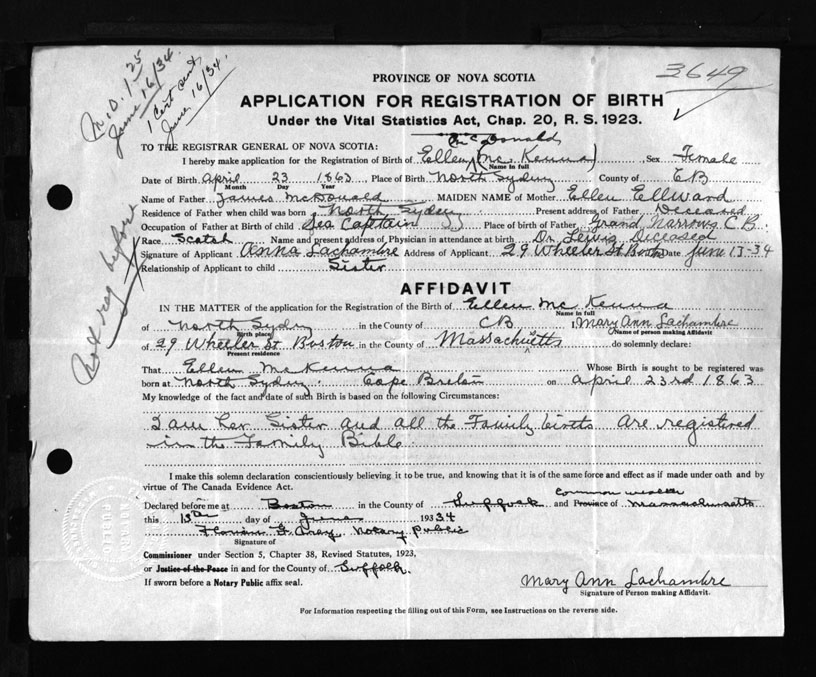 M.D. 1.25
June 16/34.
1 Cert sent
June 16/34.
3649
PROVINCE OF NOVA SCOTIA
APPLICATION FOR REGISTRATION OF BIRTH
Under the Vital Statistics Act, Chap. 20, R. S. 1923.
McDonald
TO THE REGISTRAR GENERAL OF NOVA SCOTIA:
I hereby make application for the Registration of Birth of Ellen (Mc Kenna) , Sex Female
Name in full
Date of Birth April 23 1863 Place of Birth North Sydney County of CB
Month Day Year
Name of Father James McDonald MAIDEN NAME of Mother Ellen Ellward
Residence of Father when child was born North Sydney Present address of Father Deceased
Occupation of Father at Birth of child Sea Captain Place of birth of Father Grand Narrows C B.
Race Scotch Name and present address of Physician in attendance at birth Dr Lewis Deceased
Signature of Applicant Anna Lachambre Address of Applicant 29 Wheeler St Boston Date June 13-34
Relationship of Applicant to child Sister
Not reg before
AFFIDAVIT
IN THE MATTER of the application for the Registration of the Birth of Ellen Mc Kenna
Name in full
of North Sydney in the County of CB I, Mary Ann Lachambre
Birth place Name of person making Affidavit
of 29 Wheeler St Boston in the County of Massachusetts do solemnly declare:
Present residence
That Ellen McKenna Whose Birth is sought to be registered was
born at North Sydney Cape Breton on April 23rd 1863
My knowledge of the fact and date of such Birth is based on the following Circumstances:
I am her Sister and all the Family births are registered
in the Family Bible
I make this solemn declaration conscientiously believing it to be true, and knowing that it is of the same force and effect as if made under oath and by
virtue of The Canada Evidence Act.
Commonwealth
Declared before me at Boston in the County of Suffolk and Province of Massachusetts
this 13th day of June 193334
Notary Public
Signature of
Commissioner under Section 5, Chapter 38, Revised Statutes, 1923,
or Justice of the Peace in and for the County of Suffolk.
If sworn before a Notary Public affix seal.
Mary Ann Lachambre
Signature of Person making Affidavit.
For Information respecting the filling out of this Form, see Instructions on the reverse side.